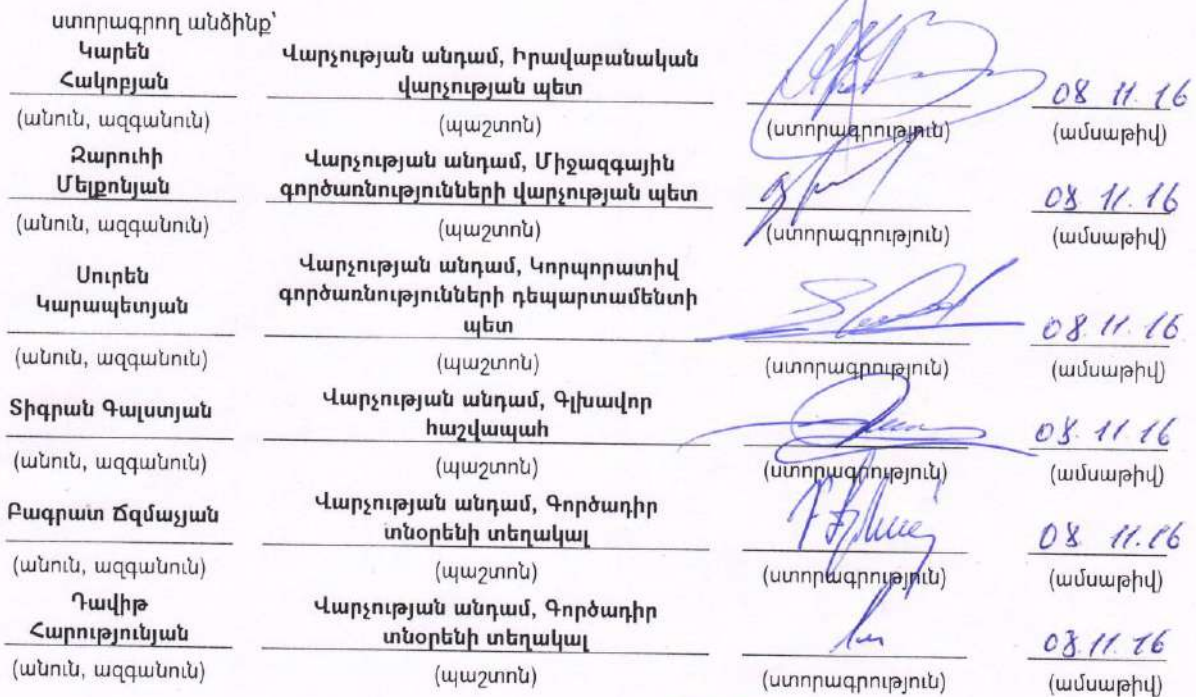 ստորագրող անձինք՝
Կարեն Վարչության անդամ, Իրավաբանական
Հակոբյան վարչության պետ 08 11.16
(անուն, ազգանուն) (պաշտոն) (ստորագրություն) (ամսաթիվ)
Զարուհի Վարչության անդամ, Միջազգային
Մելքոնյան գործառնությունների վարչության պետ 08.11.16
(անուն, ազգանուն) (պաշտոն) (ստորագրություն) (ամսաթիվ)
Սուրեն Վարչության անդամ, Կորպորատիվ
Կարապետյան գործառնությունների դեպարտամենտի
պետ 08.11.16
(անուն, ազգանուն) (պաշտոն) (ստորագրություն) (ամսաթիվ)
Տիգրան Գալստյան Վարչության անդամ, Գլխավոր
հաշվապահ 08.11.16
(անուն, ազգանուն) (պաշտոն) (ստորագրություն) (ամսաթիվ)
Բագրատ Ճզմաչյան Վարչության անդամ, Գործադիր
տնօրենի տեղակալ 08 11.16
(անուն, ազգանուն) (պաշտոն) (ստորագրություն) (ամսաթիվ)
Դավիթ Վարչության անդամ, Գործադիր
Հարությունյան տնօրենի տեղակալ 08.11.16
(անուն, ազգանուն) (պաշտոն) (ստորագրություն) (ամսաթիվ)